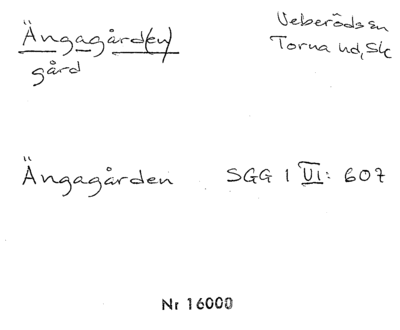 Ängagård(en)
gård
Veberöds sn
Torna hd, Sk
Ängagården SGG 1 VI: 607
Nr 16000